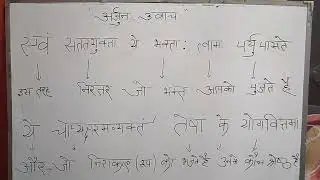 अर्जुन उवाच
एवं सततयुक्ता ये भक्ता: त्वाम पर्युपासते
इस तरह निरंतर जो भक्त आपको पूजते हैं
ये चाप्यक्षरमव्यक्तं तेषां के योगवित्तमा
और जो निराकार (रूप) को भजते है उनमें कौन श्रेष्ठ है